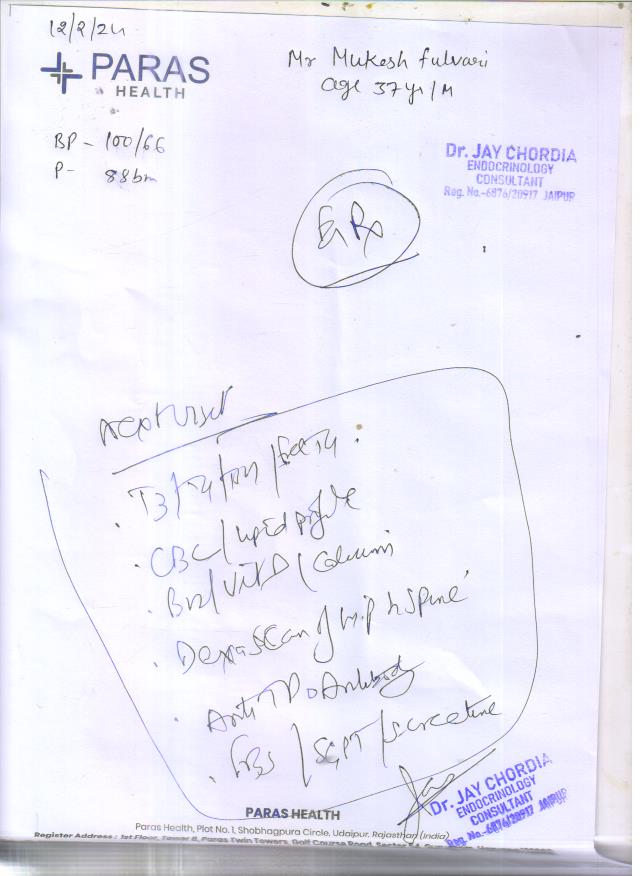 12/2/24
PARAS
HEALTH
Mr Mukesh fulvari
age 37yr/M
BP - 100/66
P- 88bm
Dr. JAY CHORDIA
ENDOCRINOLOGY
CONSULTANT
Reg. No.-6876/20917 JAIPUR
Rx
Next visit
. T3/T4/TSH/freeT4.
. CBC/lipid profile
. B12/VitD/Calcium
. Dexa scan of hip & spine
. Anti TPO Antibody
. FBS/SGPT/S.creatine
Dr. JAY CHORDIA
ENDOCRINOLOGY
CONSULTANT
Reg. No.-6876/20917 JAIPUR
PARAS HEALTH
Paras Health, Plot No. 1, Shobhagpura Circle, Udaipur, Rajasthan (India)
Register Address : 1st Floor, Tower B, Paras Twin Towers, Golf Course Road, Sector